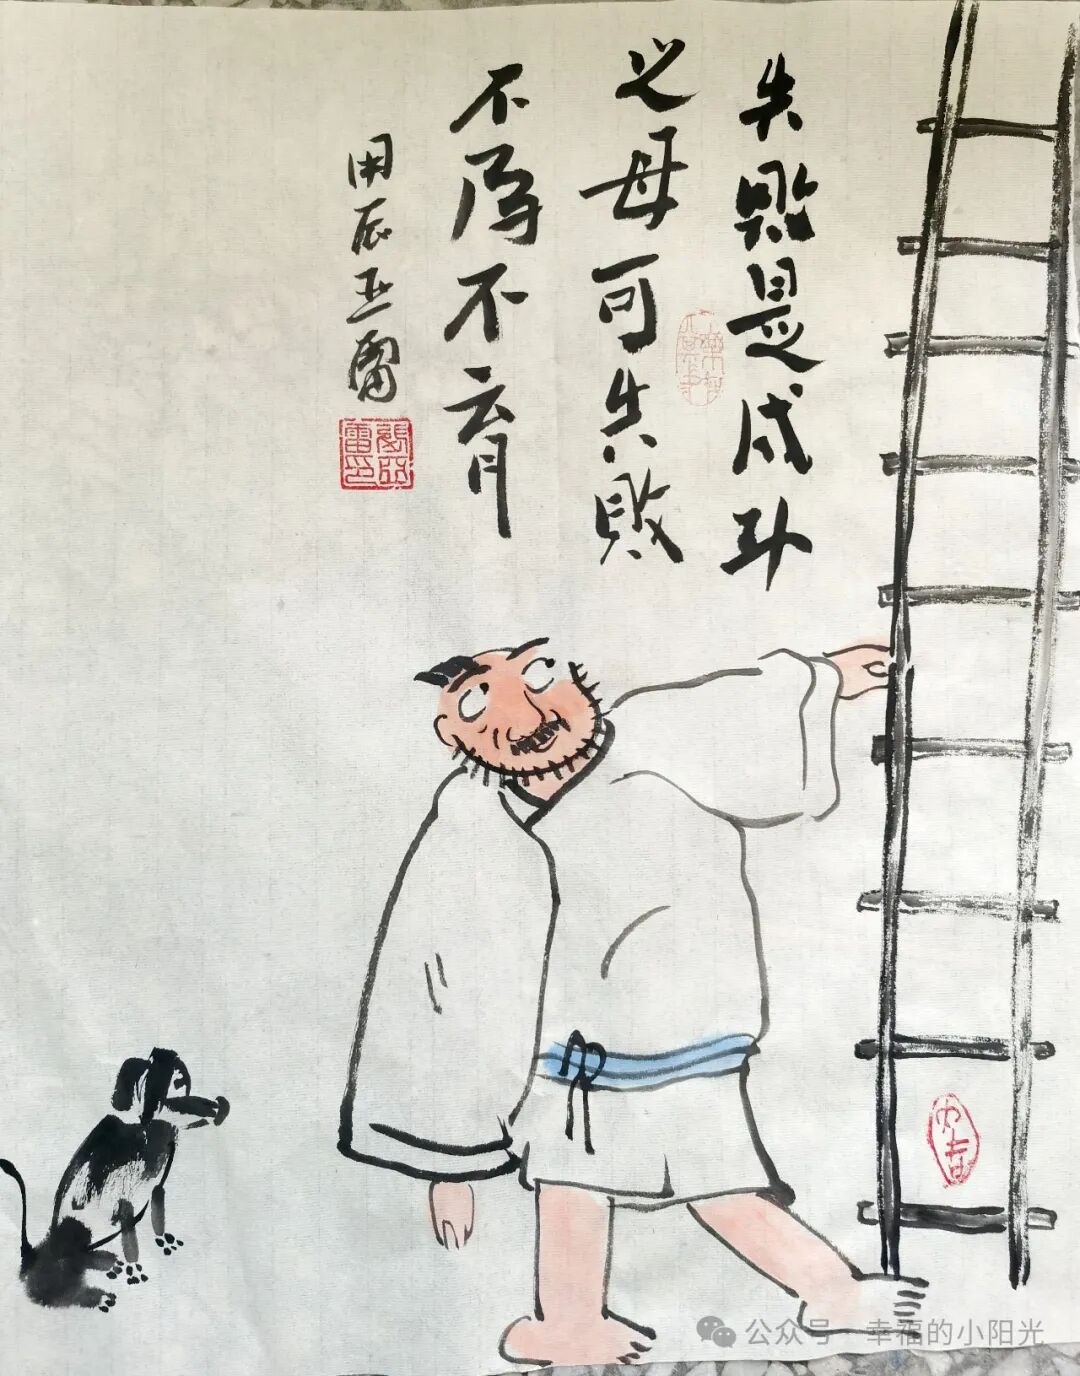 失敗是成功
之母可失敗
不孕不育
甲辰亚雷
公众号 · 幸福的小阳光